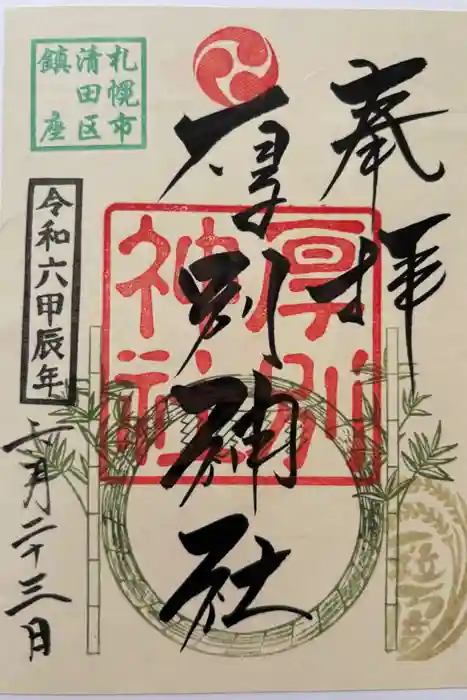 奉拝
厚別神社
厚別
神社
札幌市
清田区
鎮座
令和六甲辰年
六月二十三日